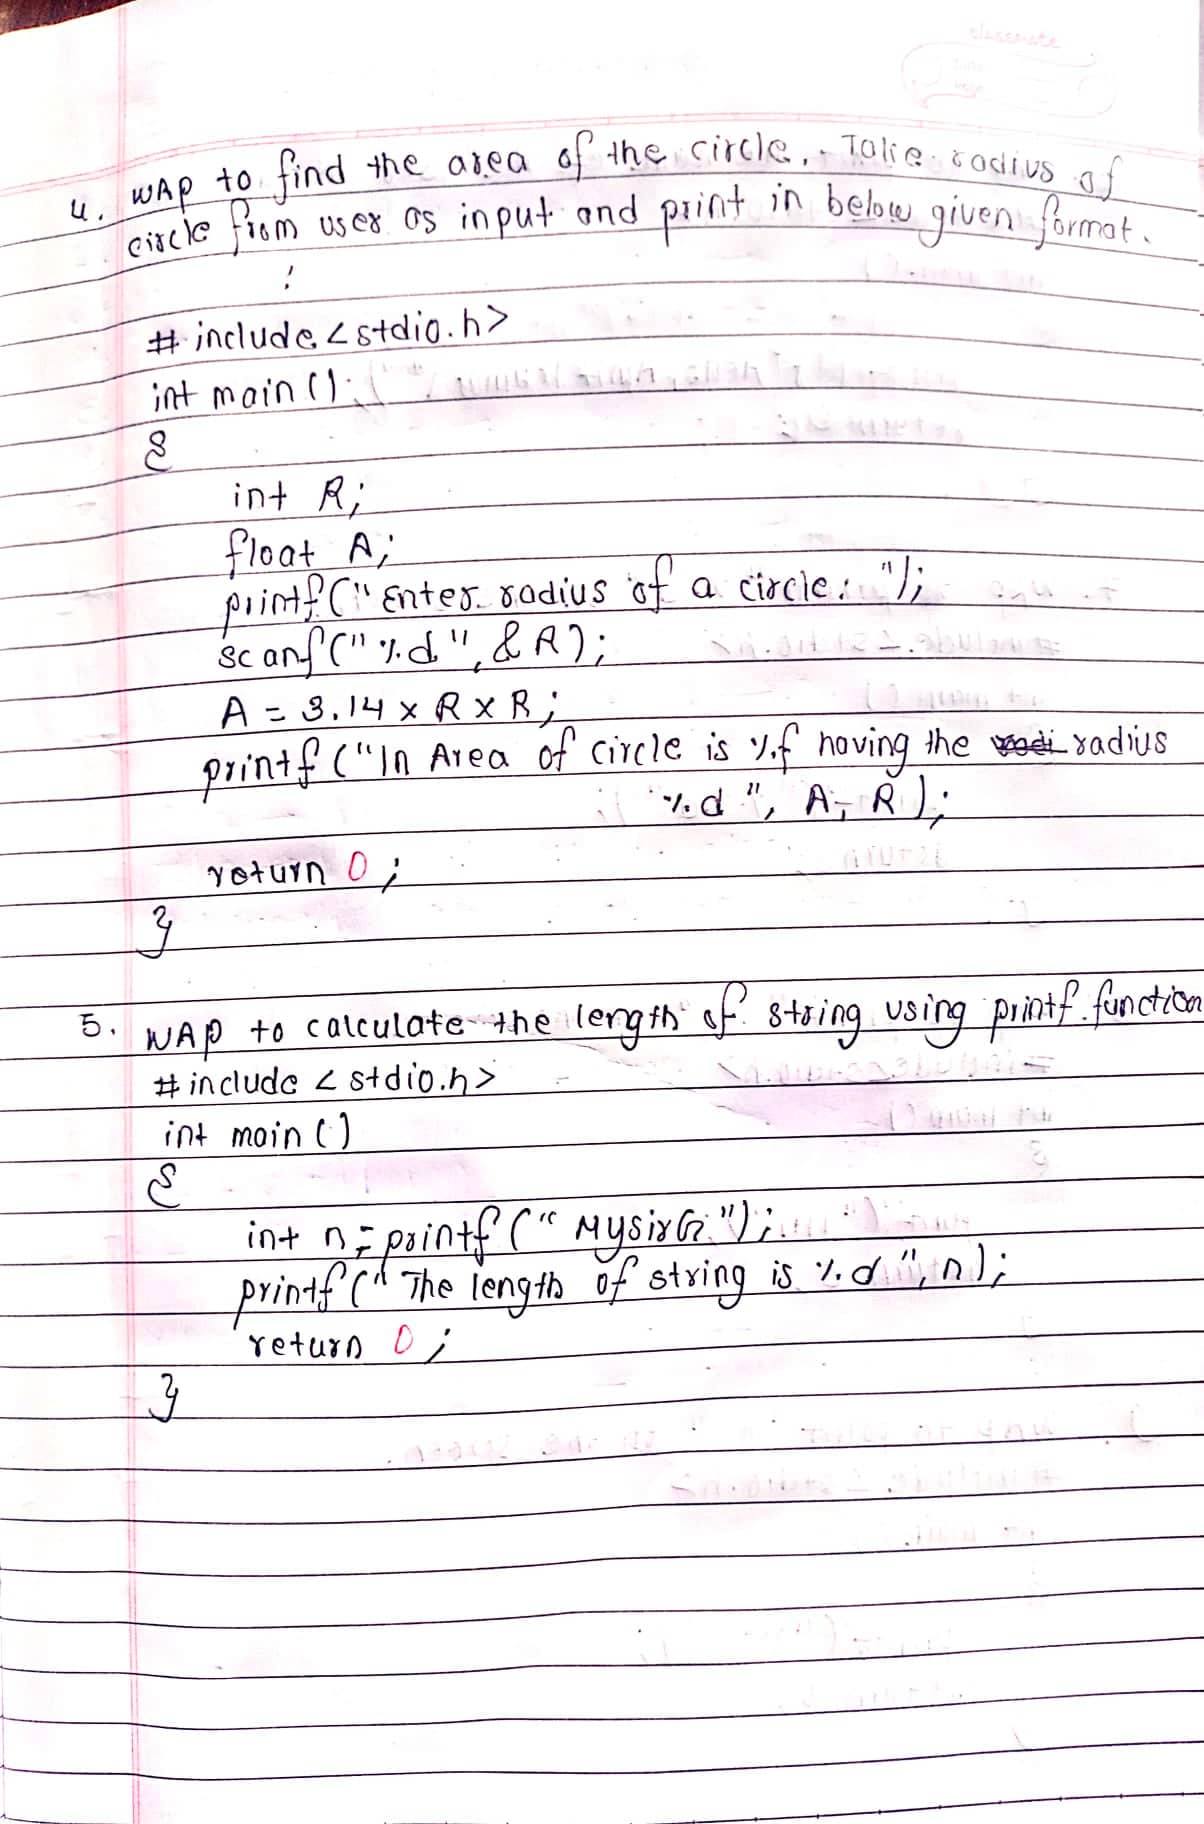 classmate
4. WAP to find the area of the circle. Take radius of
circle from user as input and print in below given format.
:
# include <stdio.h>
int main()
{
int R;
float A;
printf("Enter radius of a circle: ");
scanf("%d", &R);
A = 3.14 x R x R;
printf("\n Area of circle is %f having the radius
%d", A, R);
return 0;
}
5. WAP to calculate the length of string using printf function
# include <stdio.h>
int main()
{
int n = printf("MysirG");
printf("The length of string is %d", n);
return 0;
}